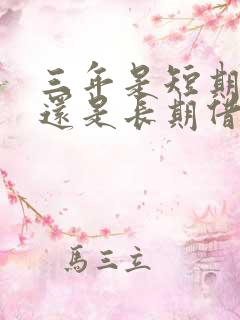 三年是短期
還是長期借
馬三立